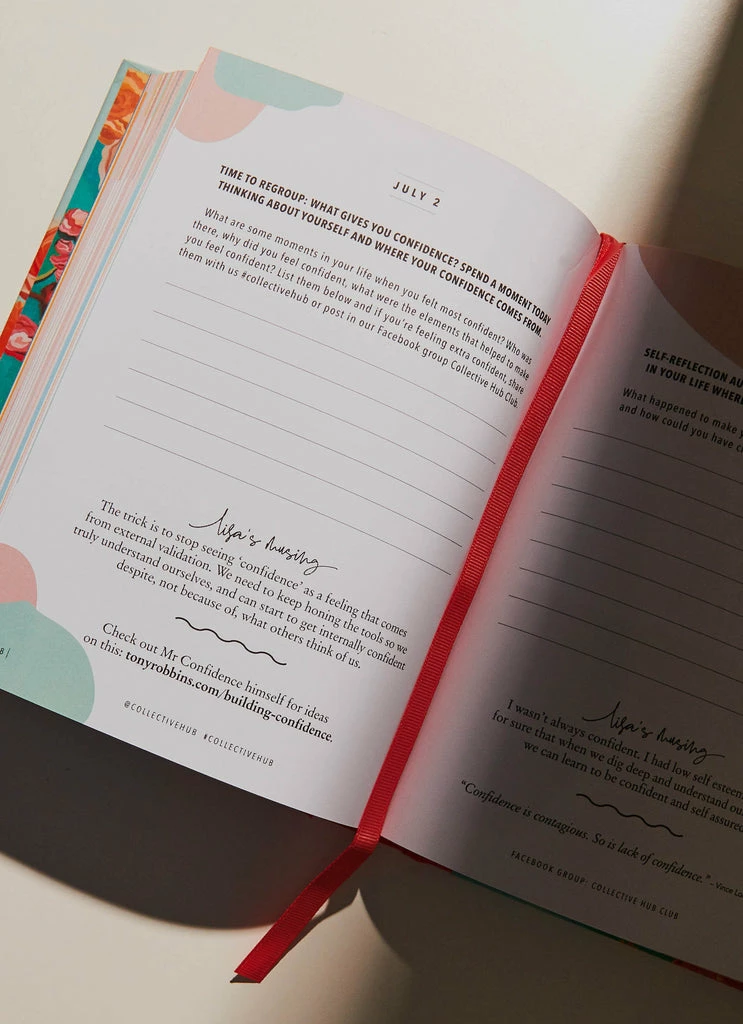 JULY 2
TIME TO REGROUP: WHAT GIVES YOU CONFIDENCE? SPEND A MOMENT TODAY
THINKING ABOUT YOURSELF AND WHERE YOUR CONFIDENCE COMES FROM.
What are some moments in your life when you felt most confident? Who was
there, why did you feel confident, what were the elements that helped to make
you feel confident? List them below and if you're feeling extra confident, share
them with us #collectivehub or post in our Facebook group Collective Hub Club.
lisa's musing
The trick is to stop seeing 'confidence' as a feeling that comes
from external validation. We need to keep honing the tools so we
truly understand ourselves, and can start to get internally confident
despite, not because of, what others think of us.
Check out Mr Confidence himself for ideas
on this: tonyrobbins.com/building-confidence.
@COLLECTIVEHUB #COLLECTIVEHUB
SELF-REFLECTION
IN YOUR LIFE
What happened to make
and how could you have
lisa's musing
I wasn't always confident. I had low self
for sure that when we dig deep and understand
we can learn to be confident and self
"Confidence is contagious. So is lack of confidence." - Vince
FACEBOOK GROUP- COLLECTIVE HUB CLUB